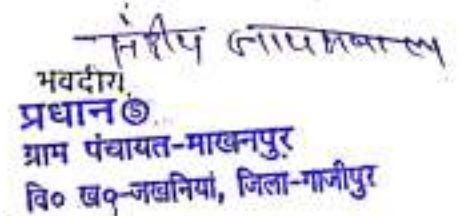 संदीप जायसवाल
भवदीय
प्रधान
ग्राम पंचायत-माखनपुर
वि० ख०-जखनियां, जिला-गाजीपुर